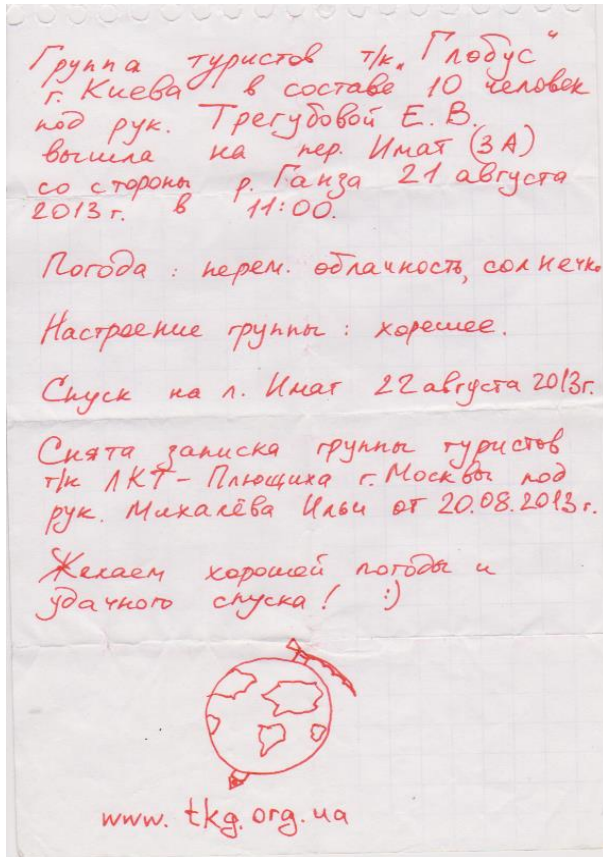 Группа туристов т/к „Глобус"
г. Киева в составе 10 человек
под рук. Трегубовой Е.В.
вышла на пер. Имат (3А)
со стороны р. Ганза 21 августа
2013г. в 11:00.
Погода : перем. облачность, солнечно
Настроение группы : хорошее.
Спуск на л. Имат 22 августа 2013г.
Снята записка группы туристов
т/к ЛКТ-Плющиха г. Москвы под
рук. Михалёва Ильи от 20.08.2013г.
Желаем хорошей погоды и
удачного спуска! :)
www. tkg.org.ua